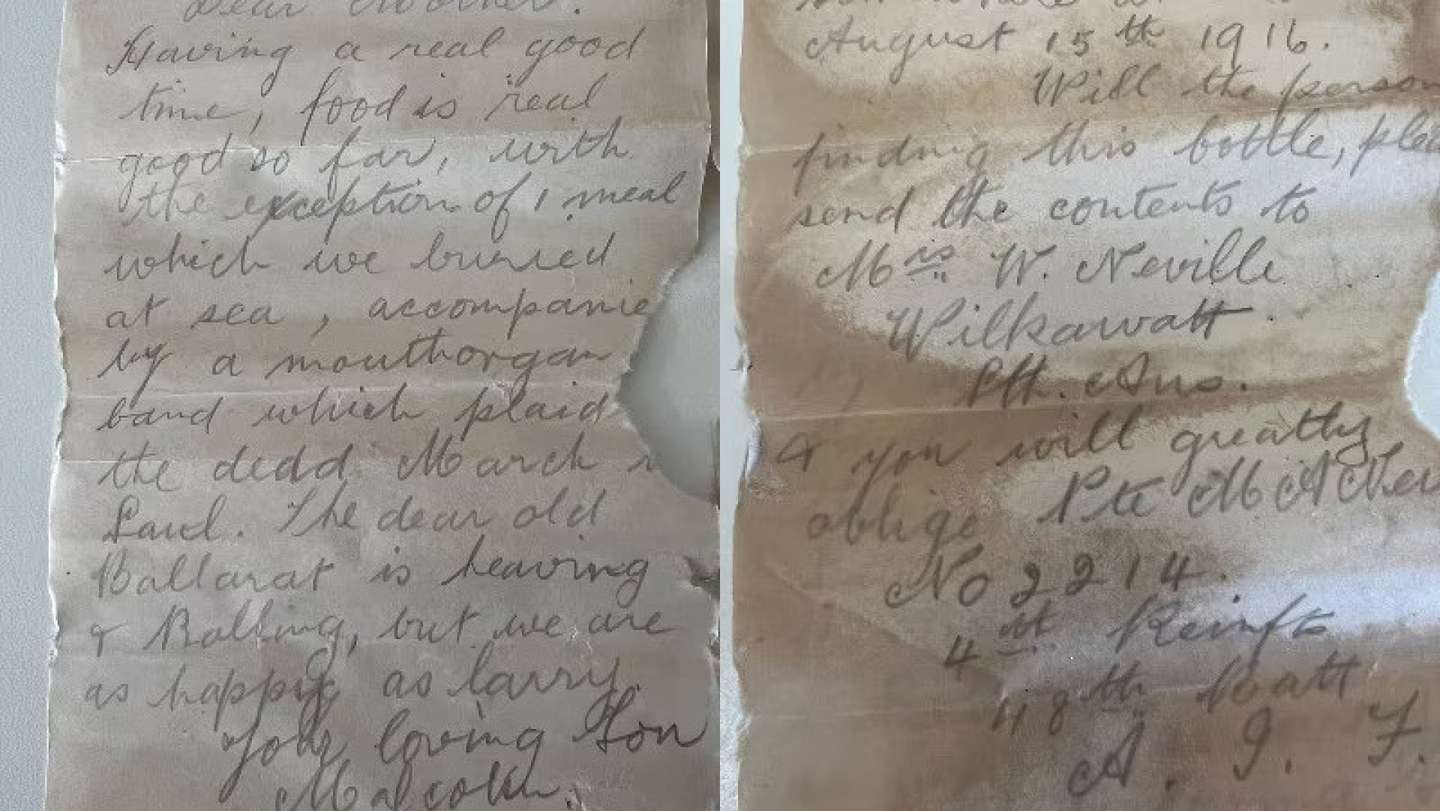 Dear Mother.
Having a real good
time, food is real
good so far, with
the exception of 1 meal
which we buried
at sea, accompanie
by a mouthorgan
band which plaid
the dedd March
Saul. The dear old
Ballarat is heaving
& Rolling, but we are
as happy as larry.
Your loving Son
Malcolm.
August 15th 1916.
Will the person
finding this bottle, plea
send the contents to
W. Neville
Wilkawatt
Sth. Aus.
& you will greatly
oblige Pte M A Nev
No 2214.
4th Reinfts
48th Batt
A. I. F.